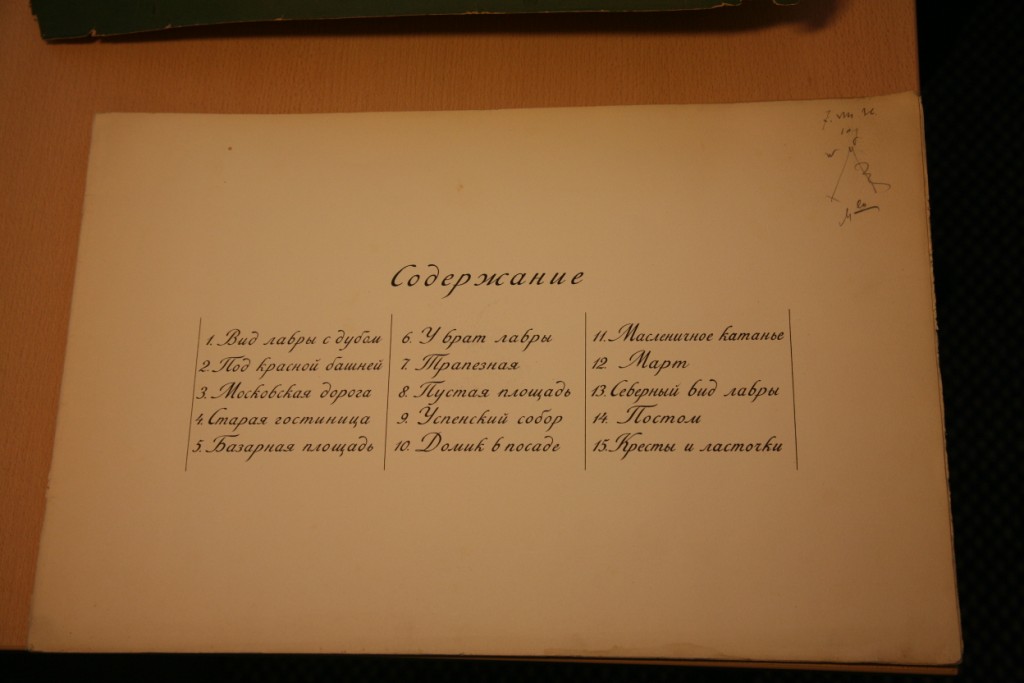 Содержание
1. Вид лавры с дубом
2. Под красной башней
3. Московская дорога
4. Старая гостиница
5. Базарная площадь
6. У врат лавры
7. Трапезная
8. Пустая площадь
9. Успенский собор
10. Домик в посаде
11. Масленичное катанье
12. Март
13. Северный вид лавры
14. Постом
15. Кресты и ласточки